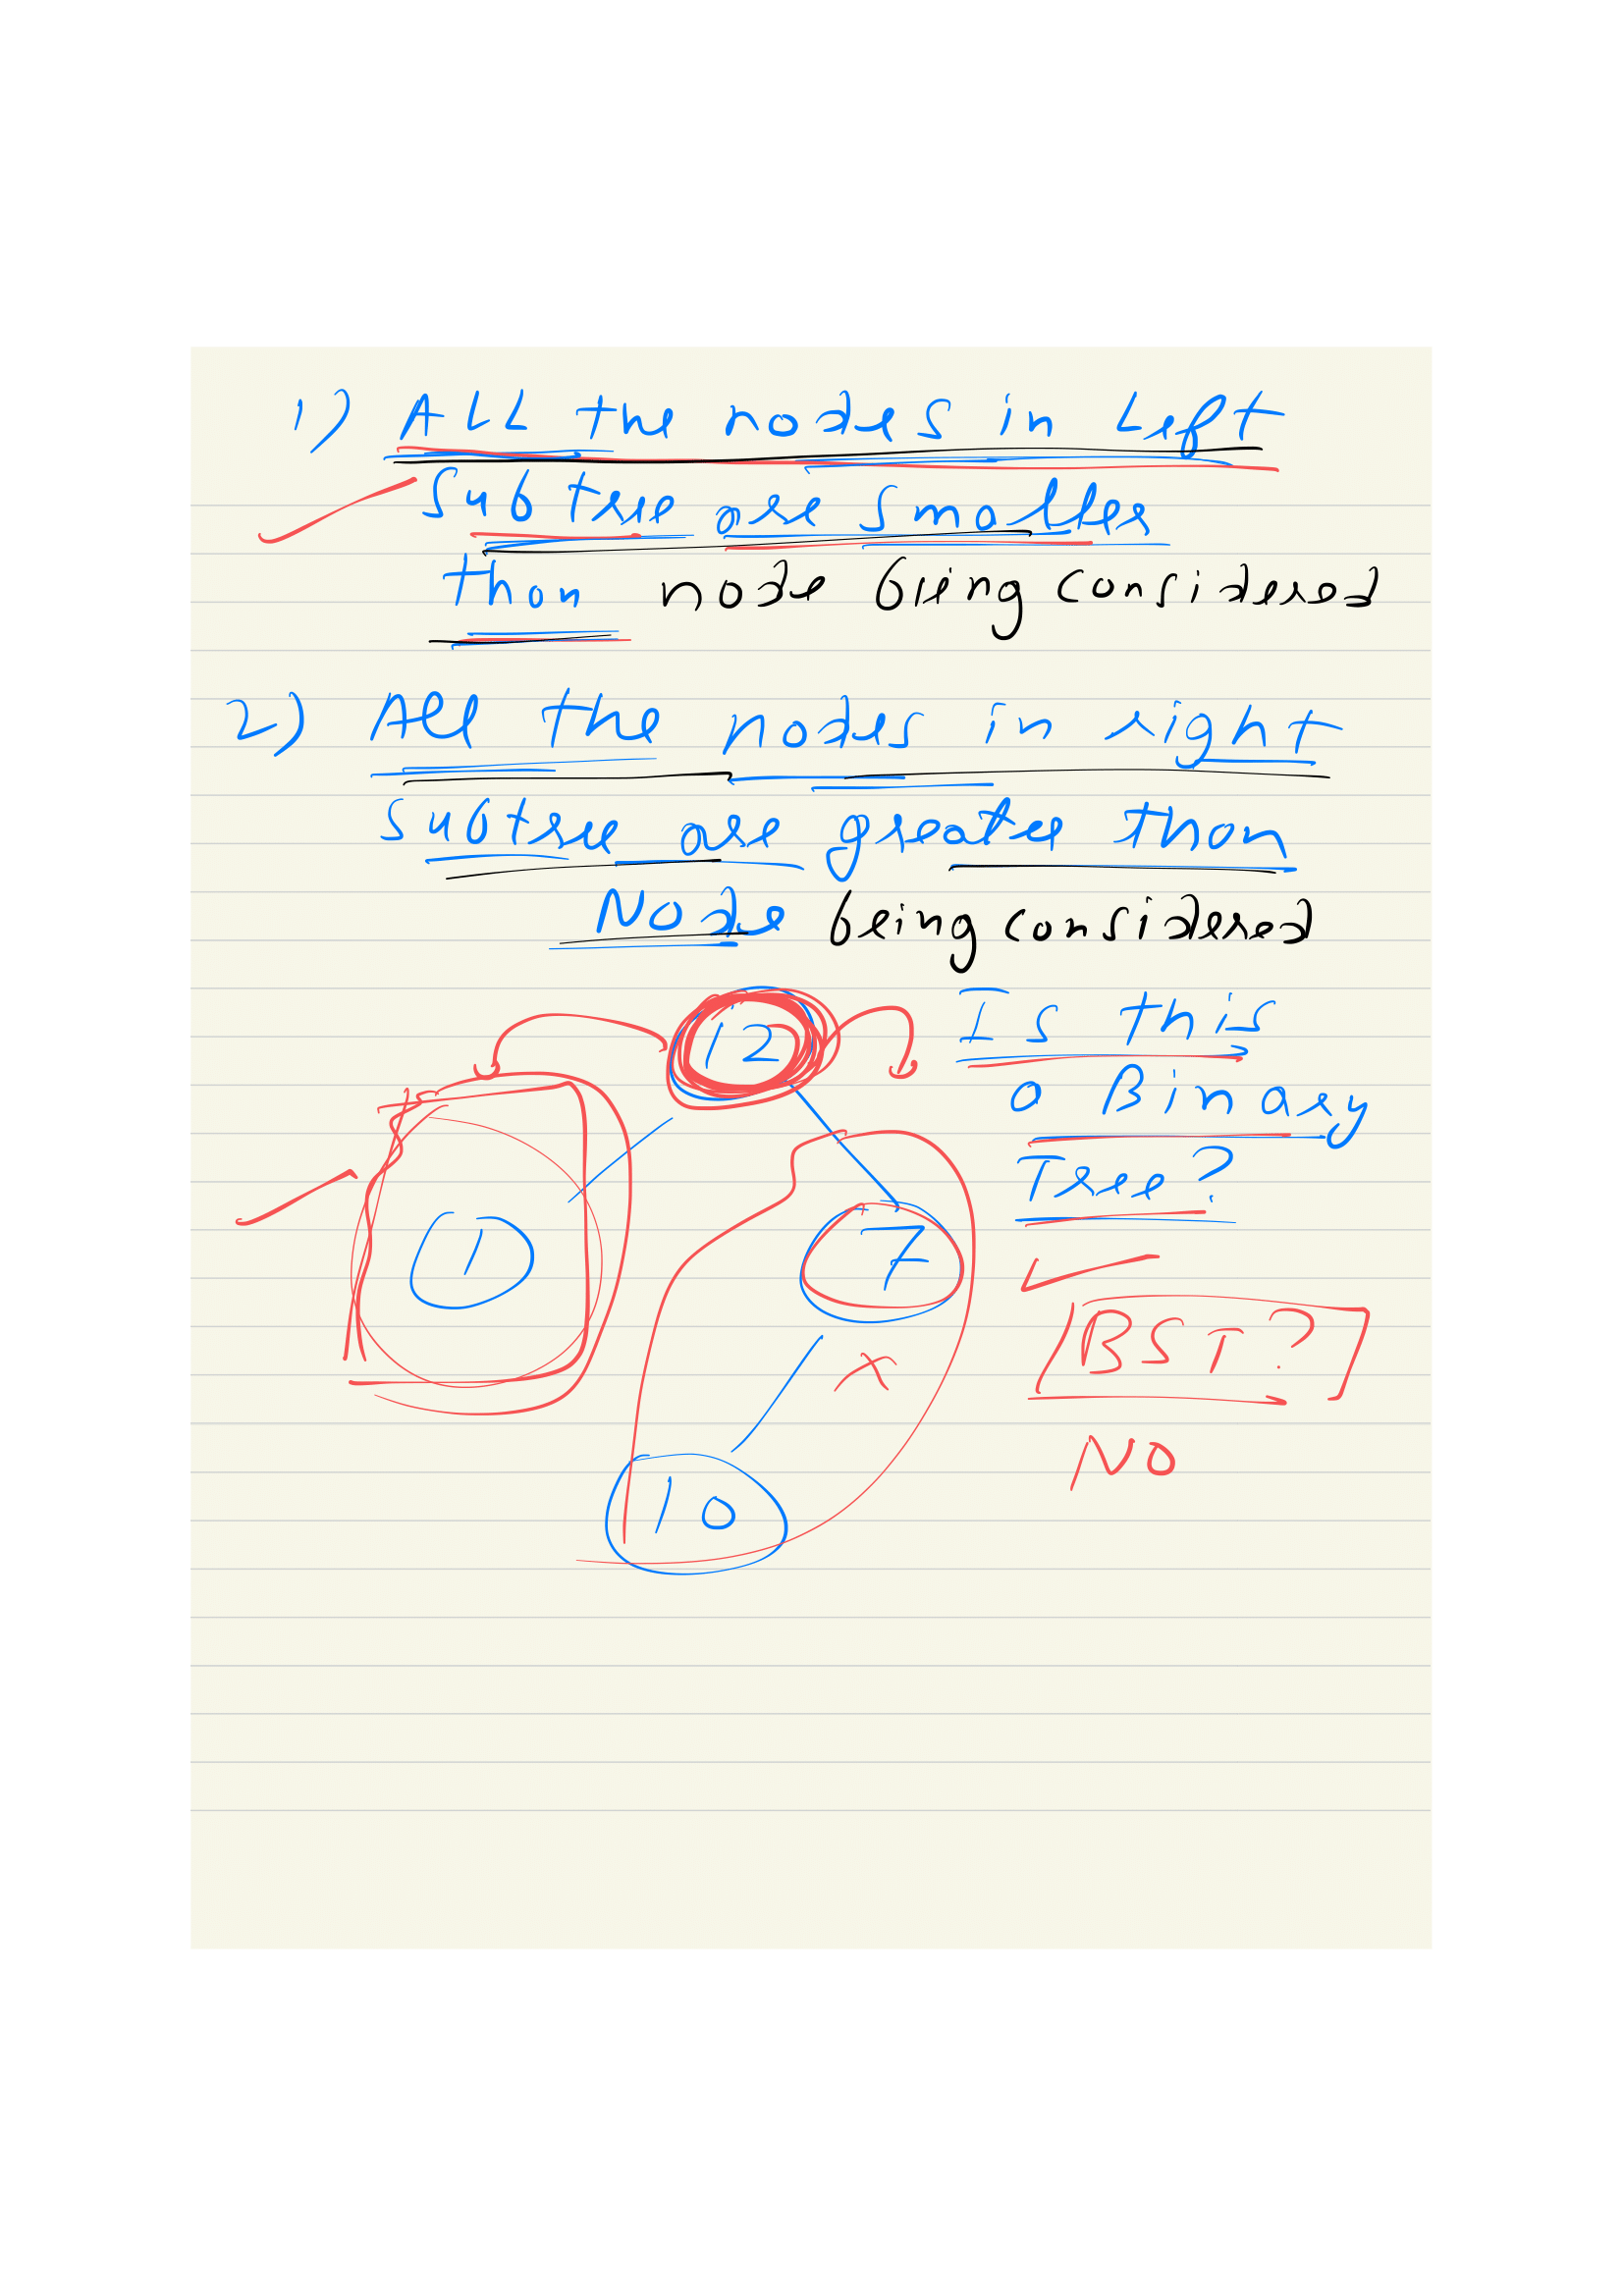 1) ALL the nodes in Left
Subtree are smaller
than node being considered
2) All the nodes in right
subtree are greater than
Node being considered
12
Is this
a Binary
Tree?
1
7
BST?
NO
10